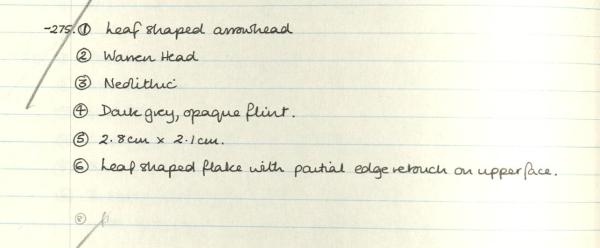 -275. ① Leaf shaped arrowhead
② Warren Head
③ Neolithic
④ Dark grey, opaque flint.
⑤ 2.8cm x 2.1cm.
⑥ Leaf shaped flake with partial edge retouch on upper face.
⑧